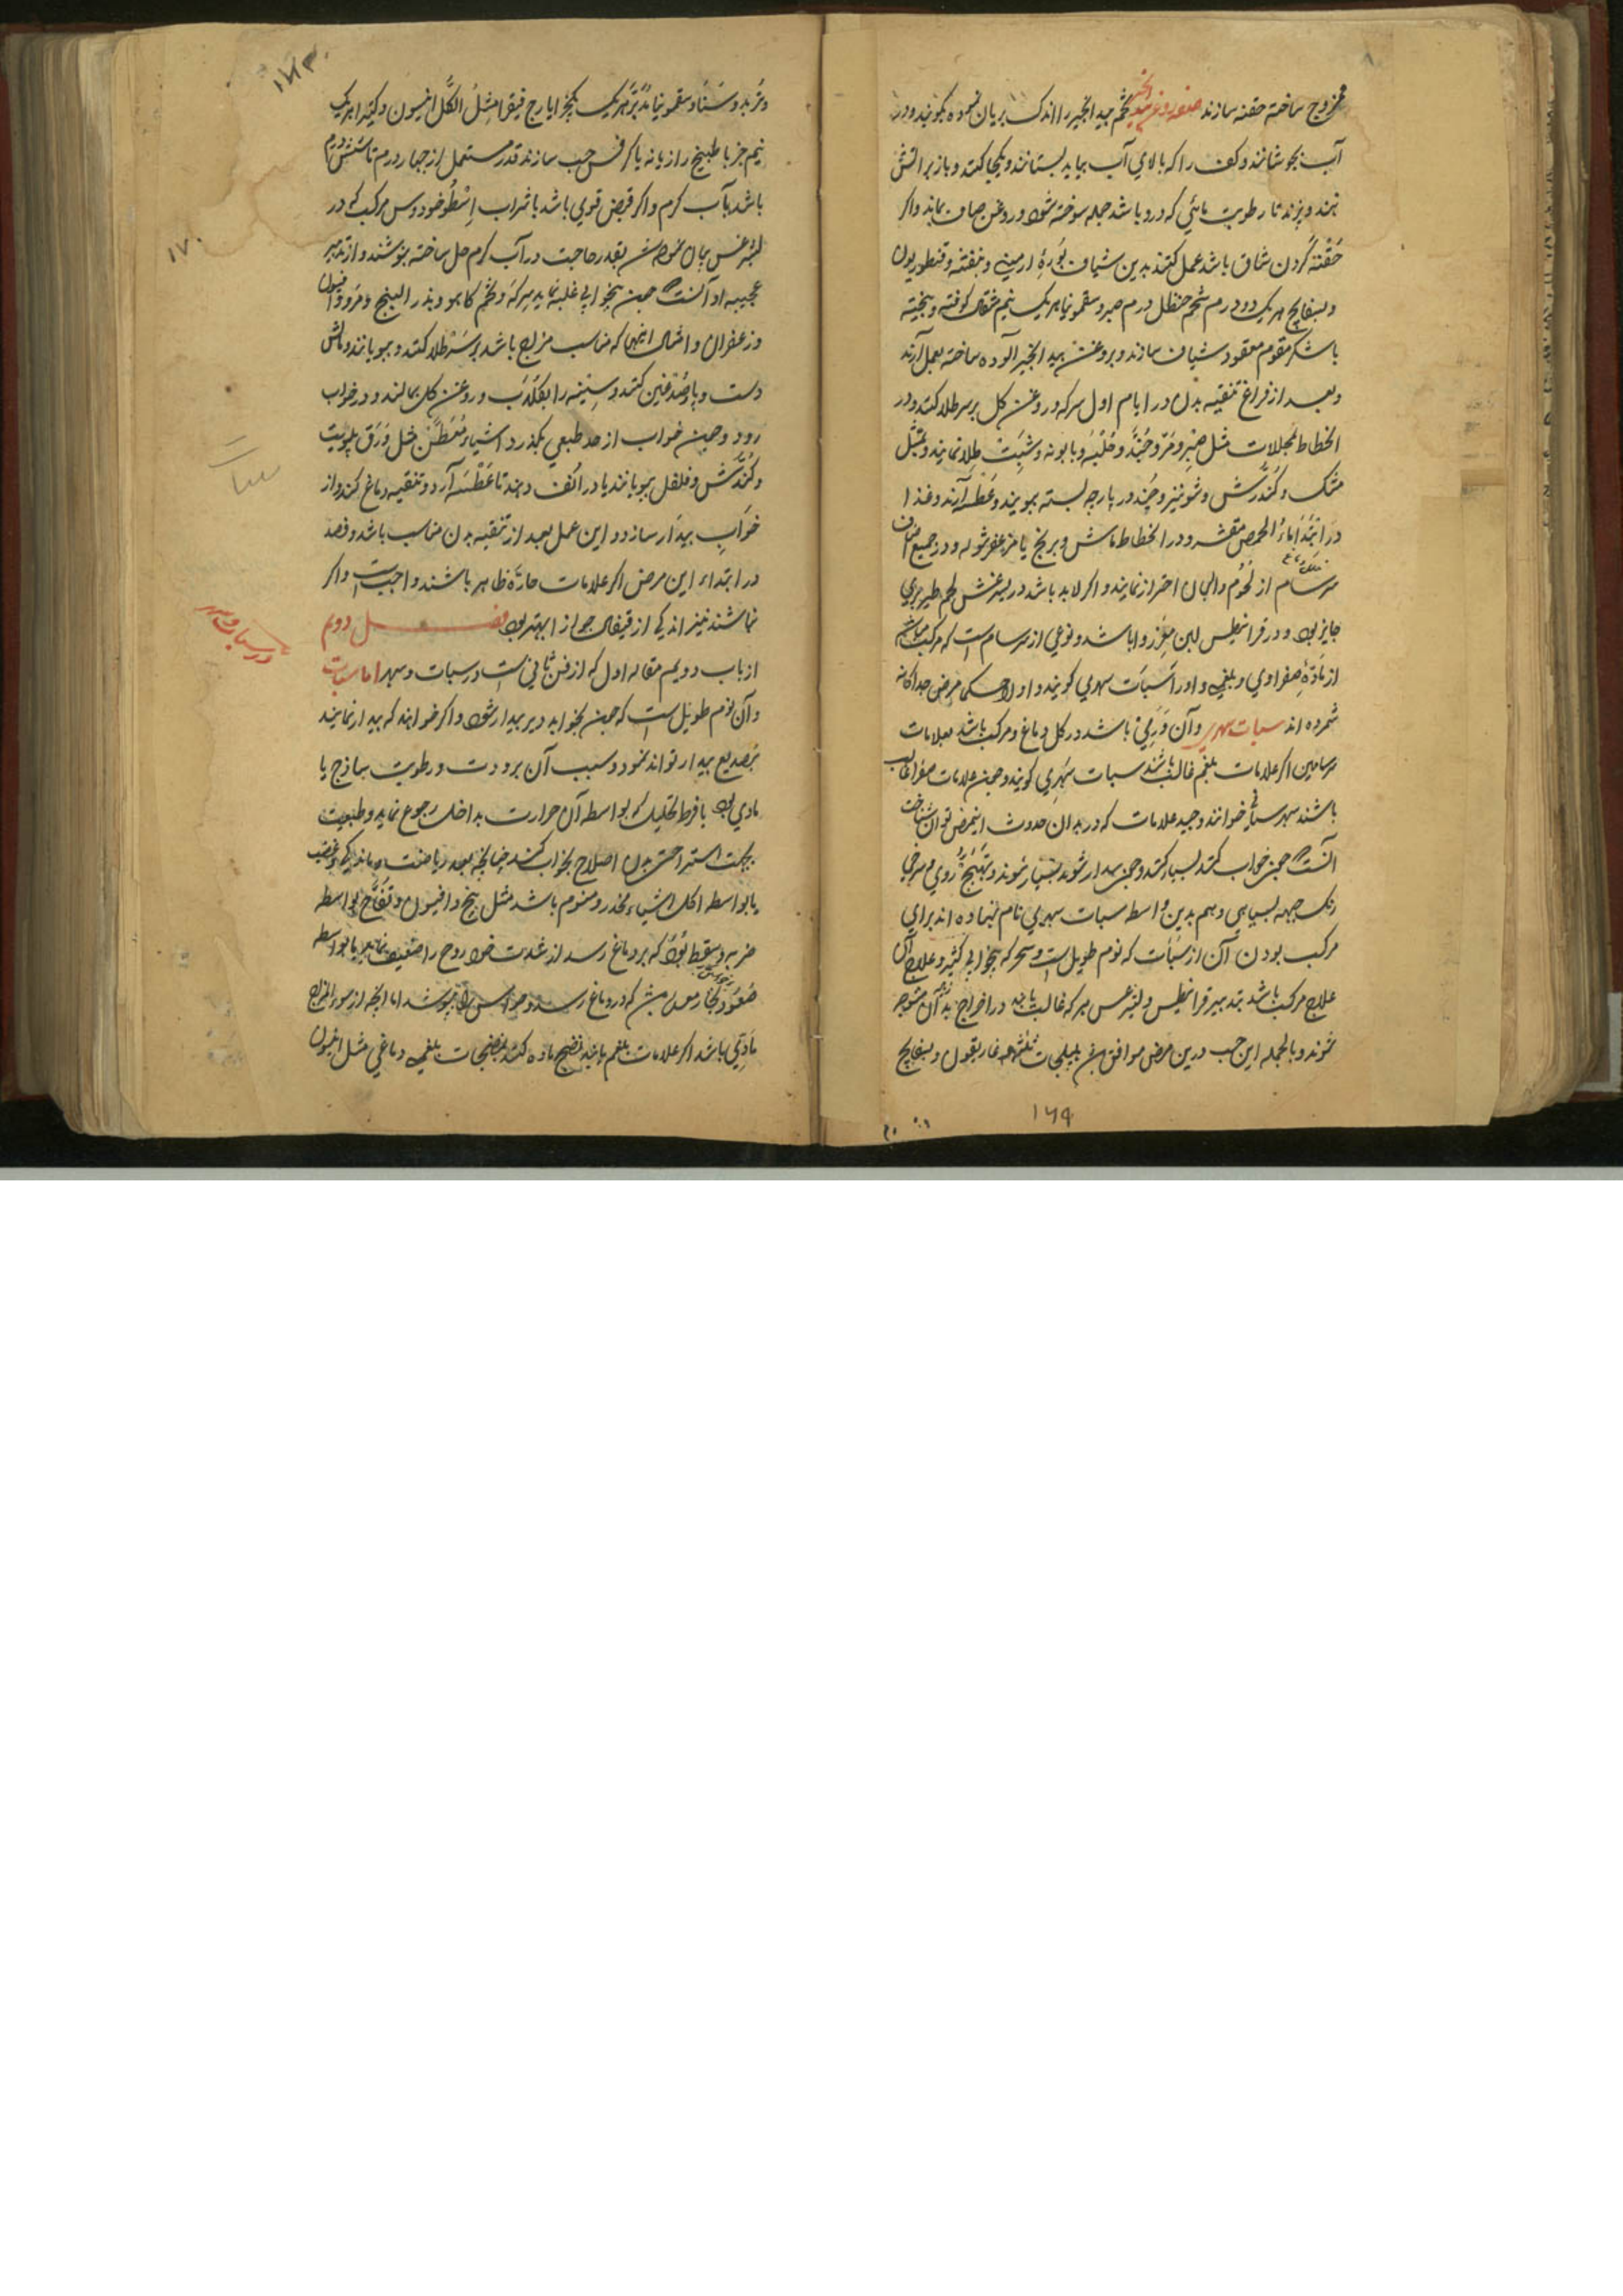 ممزوج ساخته حقنه سازند صفة روغن بید انجیر تخم بید انجیر را اندک بریان نموده بکوبند و در
آب بجوشانند و کف را که بالای آب بیاید بستانند و یکجا کنند و باز بر آتش
نهند و بپزند تا رطوبت مائی که درو باشد جمله سوخته شود و روغن صاف بماند و اکر
حقنه کردن شاق باشد عمل کنند بدین شیاف بورۀ ارمنی و بنفشه و قنطوریون
و بسفایج هر یک دو درم شحم حنظل درم صبر و سقمونیا هر یک نیم مثقال کوفته و بیخته
با شکر مقوم معقود شیاف سازند و بروغن بید انجیر آلوده ساخته بعمل آرند
و بعد از فراغ تنقیه بدن در ایام اول سرکه و روغن کل بر سر طلا کنند و در
انحطاط محللات مثل صبر و مر و جند و حلبه و بابونه و شبت طلا نمایند و بمثل
مشک و کندش و شونیز و جند در پارچه بسته ببویند و عطسه آرند و غذا
در ابتدا ماء الحمص مقشر و در انحطاط ماش و برنج یا مزعفر شوله و در جمیع
سرسام از لحوم و البان احتراز نمایند و اکر لابد باشد در لیثرغس لحم طیر بری
جایز بود و در قرانیطس لبن معز روا باشد و نوعی از سرسام است که مرکب میباشد
از مادۀ صفراوی و بلغمی و او را سبات سهری کویند و اولا حکما مرض جداکانه
شمرده اند سبات سهری و آن ورمی باشد در کل دماغ و مرکب باشد بعلامات
سرسامین اکر علامات بلغم غالب باشند سبات سهری کویند و چون علامات صفرا غالب
باشند سهر سباتی خوانند و جید علامات که در بدان حدوث اینمرض توان شناخت
آنست که چون خواب کنند بسیار کنند و چون بیدار شوند بسیار شوند و تهبج روی و سرخی
رنک جبهه بسیاهی و هم بدین واسطه سبات سهری نام نهاده اند برای
مرکب بودن آن از سبات که نوم طویل است و سهر که بیخوابی کثیر و علاج آن
علاج مرکب باشد بتدبیر قرانیطس و لیثرغس هر که غالب باشد در اخراج بدان متوجه
شوند و بالجمله این حب درین مرض موافق بود هلیلجات ثلثه غاریقون و بسفایج
۱۶۹
۱۷۰
و تربد و سنا و سقمونیا مدبر هر یک یکجزء ایارج فیقرا مثل الکل انیسون و کتیرا هر یک
نیم جزء با طبیخ رازیانه یا کرفس حب سازند قدر مستعمل از چهار درم تا شش درم
باشد بآب کرم و اکر قبض قوی باشد با شراب اسطوخودوس مرکب که در
لیثرغس بیان شد بقدر حاجت در آب کرم حل ساخته بنوشند و از تدبیر
عجیبه او آنست که چون بیخوابی غلبه نماید سرکه و تخم کاهو و بذر البنج و مر و افیون
و زعفران و امثال اینها که مناسب مزاج باشد بر سر طلا کنند و ببویانند و مالش
دست و پا و صدغین کنند و سینه را بقلدب و روغن کل بمالند و در خواب
رود و چون خواب از حد طبعی بکذرد اشیاء معطس مثل ورق پلویت
و کندش و فلفل ببویانند یا در انف دهند تا عطسه آرد و تنقیه دماغ کند و از
خواب بیدار سازد و این عمل بعد از تنقیه بدن مناسب باشد و فصد
در ابتداء این مرض اکر علامات حارّه ظاهر باشند واجب است و اکر
نباشند نیز اندکی از قیفال جواز ابهتر بود فصل دوم
در سبات و سهر
از باب دویم مقاله اول که از فن ثانی است در سبات و سهر اما سبات
و آن نوم طویل است که چون بخوابد دیر بیدار شود و اکر خواهند که بیدار نمایند
بتصدیع بیدار تواند نمود و سبب آن برودت و رطوبت ساذج یا
مادی بود یا فرط تحلیل که بواسطه آن حرارت بداخل رجوع نماید و طبیعت
بجهت استراحت بدن اصلاح بخواب کند چنانچه بعد ریاضت و ماندکی و تعب
یا بواسطه اکل اشیاء مخدر و منوم باشد مثل بنج و افیون و تفاح یا بواسطه
ضربه و سقطه بود که بر دماغ رسد از شدت خود روح را ضعیف نماید یا بواسطه
صعود بخار که در دماغ رسد و حواس را بپوشد اما انچه از سوء المزاج
مادی باشد اکر علامات بلغم باشد نضج ماده کنند بمنضجات بلغمی دماغی مثل افیون